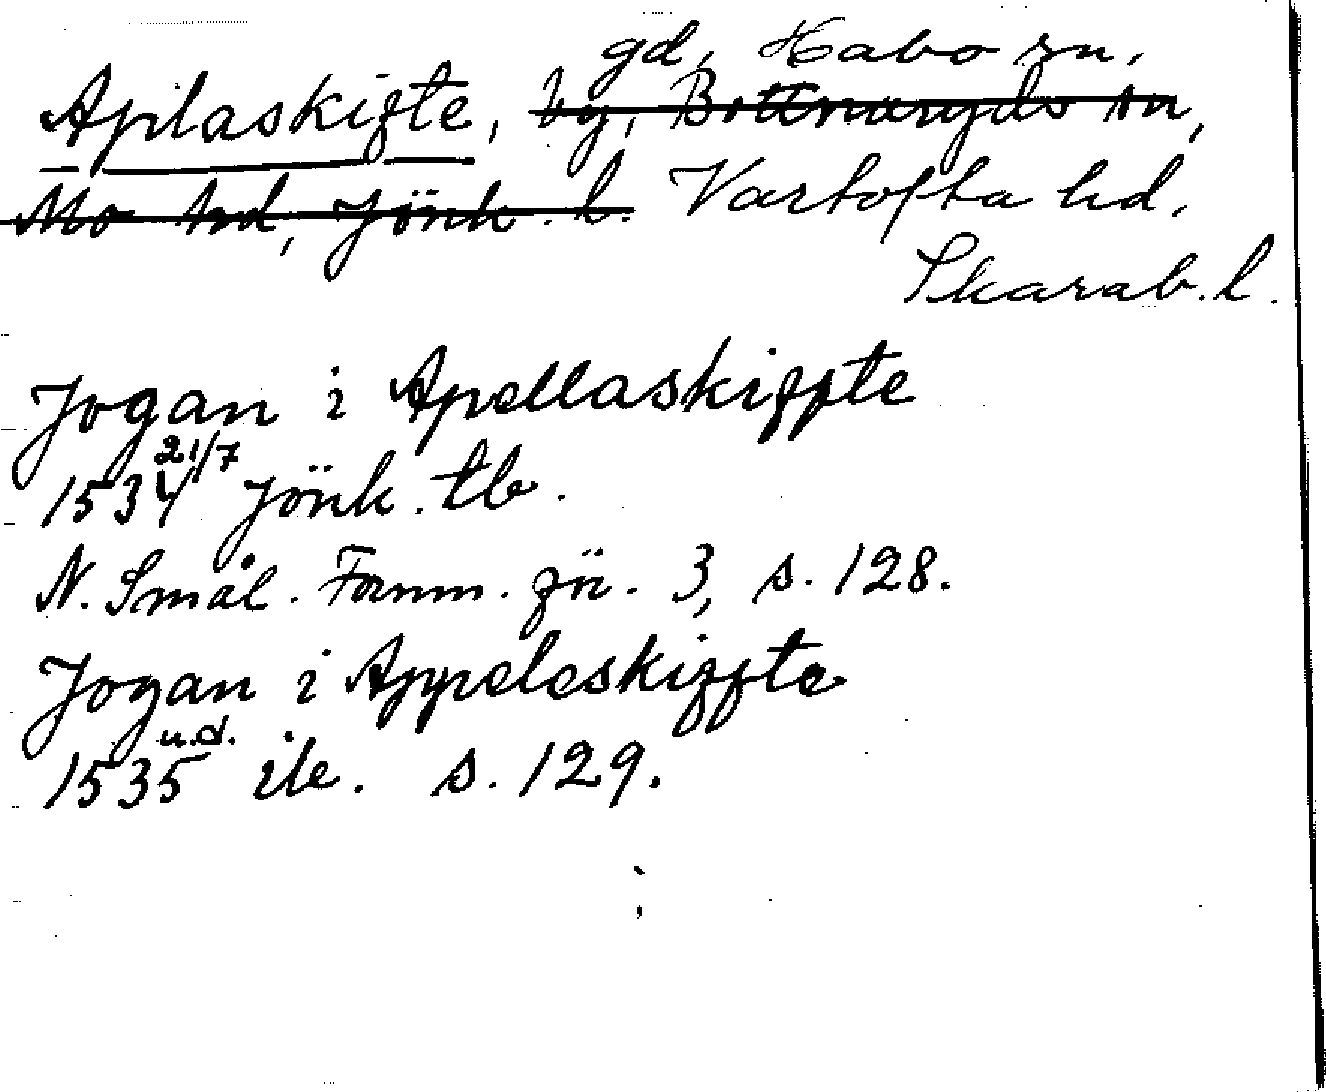 gd, Habo sn,
Aplaskifte, by, Bottnaryds sn,
Mo hd, Jönk. l. Vartofta hd,
Skarab. l.
Jogan i Apellaskiffte
1534 21/7 Jönk. tb.
N. Smål. Fornm. för. 3, s. 128.
Jogan i Appeleskiffte
1535 u.d. ib. s. 129.